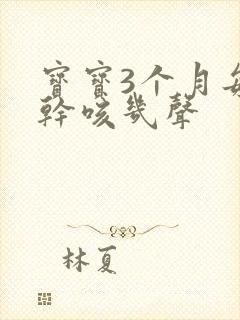 寶寶3个月每
幹咳幾聲
林夏